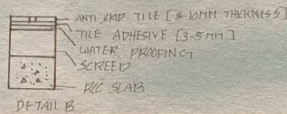 ANTI SKID TILE [8-10MM THICKNESS]
TILE ADHESIVE [3-5MM]
WATER PROOFING
SCREED
RCC SLAB
DETAIL B